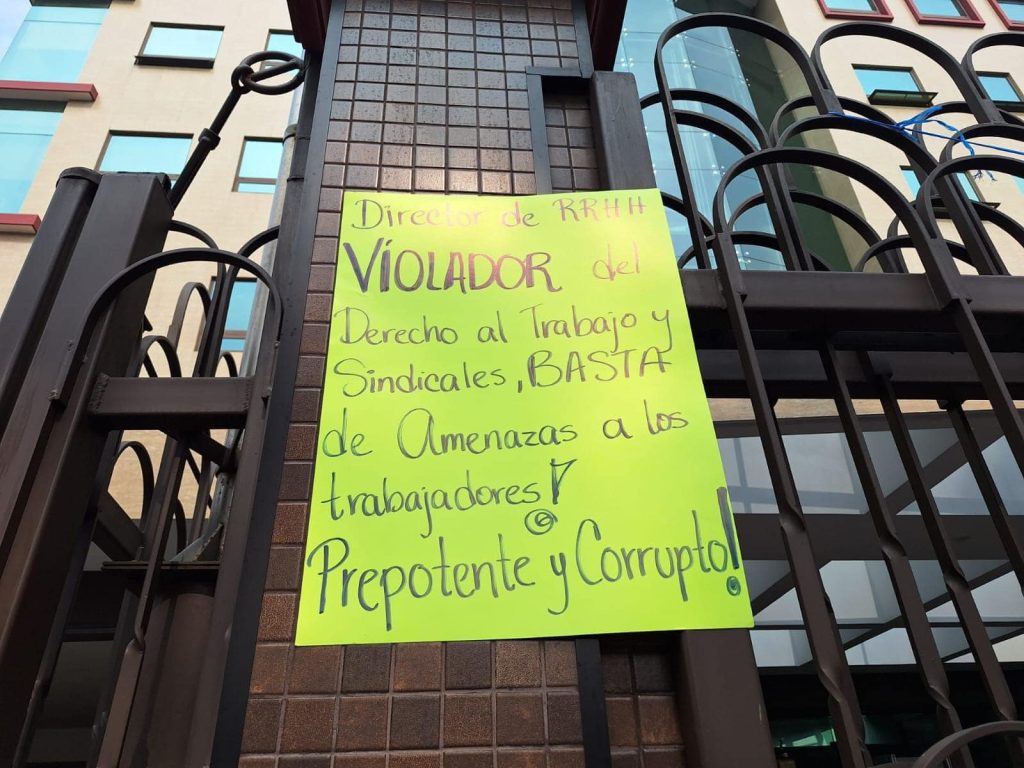 Director de RRHH
VíOLADOR del
Derecho al Trabajo y
Sindicales, BASTA
de Amenazas a los
trabajadores!
Prepotente y Corrupto!